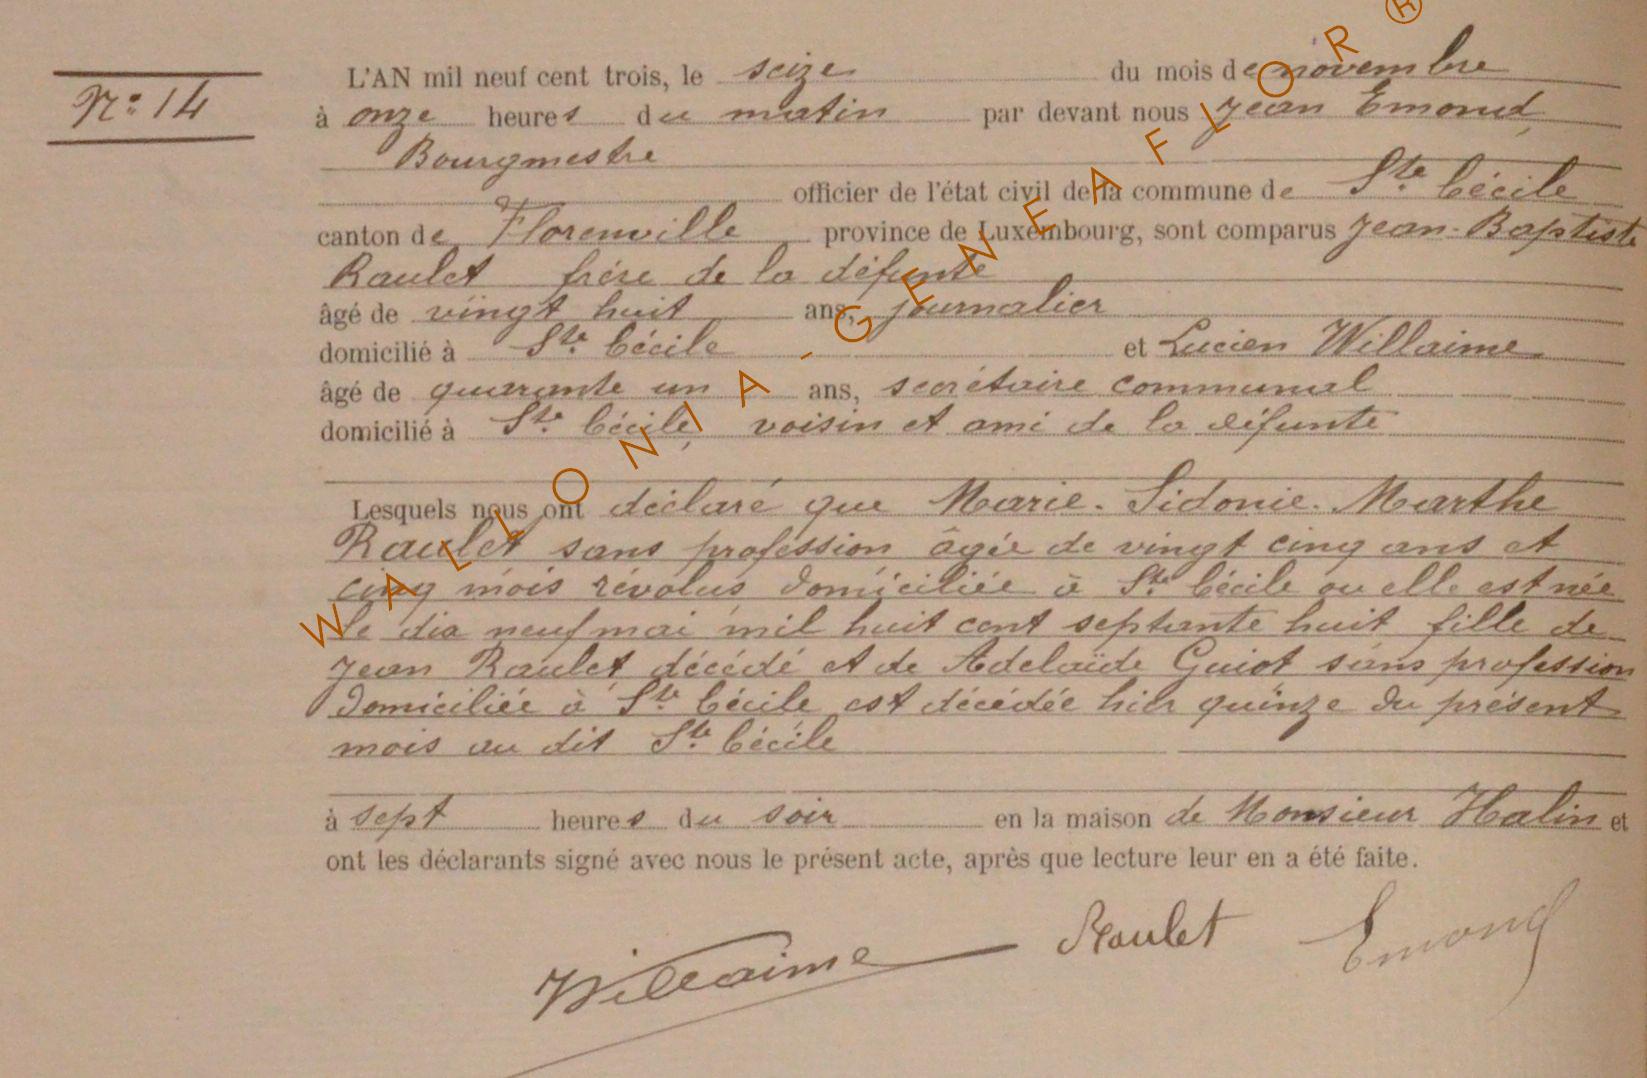 N° 14
L'AN mil neuf cent trois, le seize du mois de novembre
à onze heures du matin par devant nous Jean Emond,
Bourgmestre
officier de l'état civil de la commune de Ste Cécile
canton de Florenville province de Luxembourg, sont comparus Jean-Baptiste
Raulet frère de la défunte
âgé de vingt huit ans, journalier
domicilié à Ste Cécile et Lucien Willaime
âgé de quarante un ans, secrétaire communal
domicilié à Ste Cécile, voisin et ami de la défunte
Lesquels nous ont déclaré que Marie-Sidonie-Marthe
Raulet sans profession âgée de vingt cinq ans et
cinq mois révolus domiciliée à Ste Cécile ou elle est née
le dix neuf mai mil huit cent septante huit fille de
Jean Raulet décédé et de Adelaïde Guiot sans profession
domiciliée à Ste Cécile est décédée hier quinze du présent
mois au dit Ste Cécile
à sept heures du soir en la maison de Monsieur Halin et
ont les déclarants signé avec nous le présent acte, après que lecture leur en a été faite.
Willaime Raulet Emond
WALLONIA-GENEAFLOR®